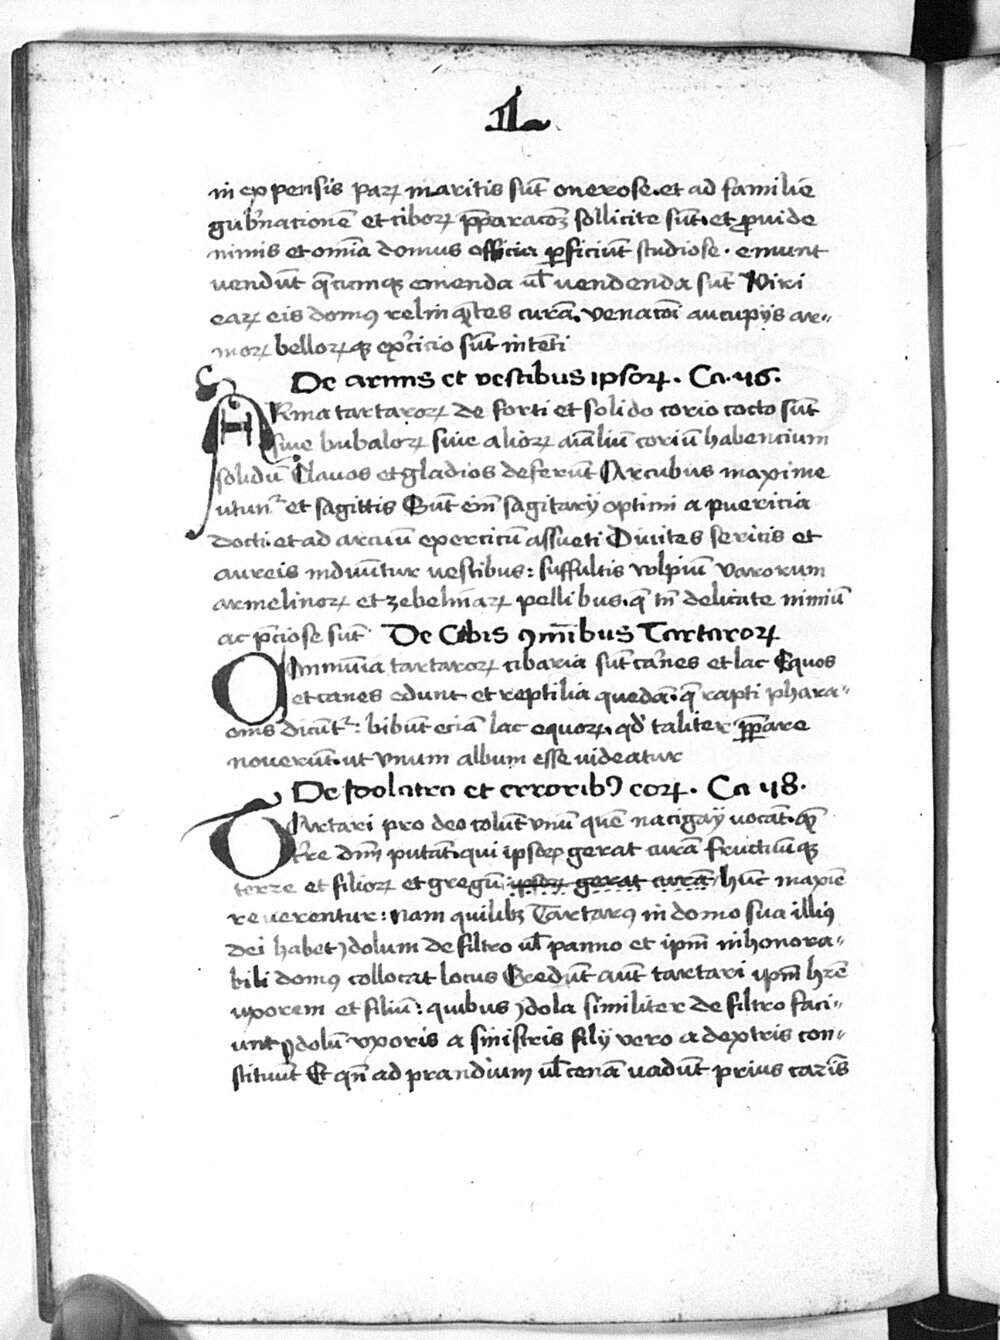 1L
in expensis parꝝ maritis sūt onerose. et ad familie
gub̄nationē et ciborꝝ p̄paracōꝫ sollicite sūt. et ꝓuide
nimis et om̄ia domus officia ꝑficiūt studiose. emunt
uendūt q̄cumqꝫ emenda ul̄ uendenda sūt Viri
earꝝ eis domꝰ relinq̄tes curā. venacōi aucupijs ar-
morꝝ bellorꝝqꝫ exʼcicio sūt intēti
De armis et vestibus ipsorꝝ. Ca. 46.
ARma tartarorꝝ de forti et solido corio cocto sūt
siue bubalorꝝ siue aliorꝝ aīaliū coriū habencium
solidū Clauos et gladios deferūt Arcubus maxime
utunʼ et sagittis Sūt em̄ sagitarij optimi a puericia
docti et ad arcuū exerciciū assueti Diuites sericis et
aureis induūtur uestibus: suffultis volpiū varorum
armelinorꝝ et zebelinarꝝ pellibus. q̄ tn̄ delicate nimiū
ac p̄ciose sūt De Cibis ꝯmūibus Tartarorꝝ
Ommunia tartarorꝝ cibaria sūt carnes et lac Equos
et canes edunt. et reptilia quedā. q̄ rapti phara-
onis dicūtʼ: bibūt eciā lac equorꝝ. qd̓ taliter p̄pare
nouerūt. ut vnum album esse uideatur
De Idolatra et erroribꝰ eorꝝ. Ca 48.
TArtari pro deo colūt vnū quē nacigay uocāt. quē
tʼre dūm putāt. qui ipsorꝝ gerat curā fructuūqꝫ
terre et filiorꝝ et gregū ipsorꝝ gerat curā hūc maxīe
reuerentur: nam quilibꝫ Tartarꝰ in domo sua illiꝰ
dei habet ydolum de filtro ul̄ panno et ipm̄ in honora-
bili domꝰ collocat locus Credūt aūt tartari ipm̄ hr̄e
uxorem et filiū: quibus ydola similiter de filtro faci-
unt ydolū vxoris a sinistris filij vero a dextris con-
stituūt Et qn̄ ad prandium ul̄ cenā uadūt prius carīs